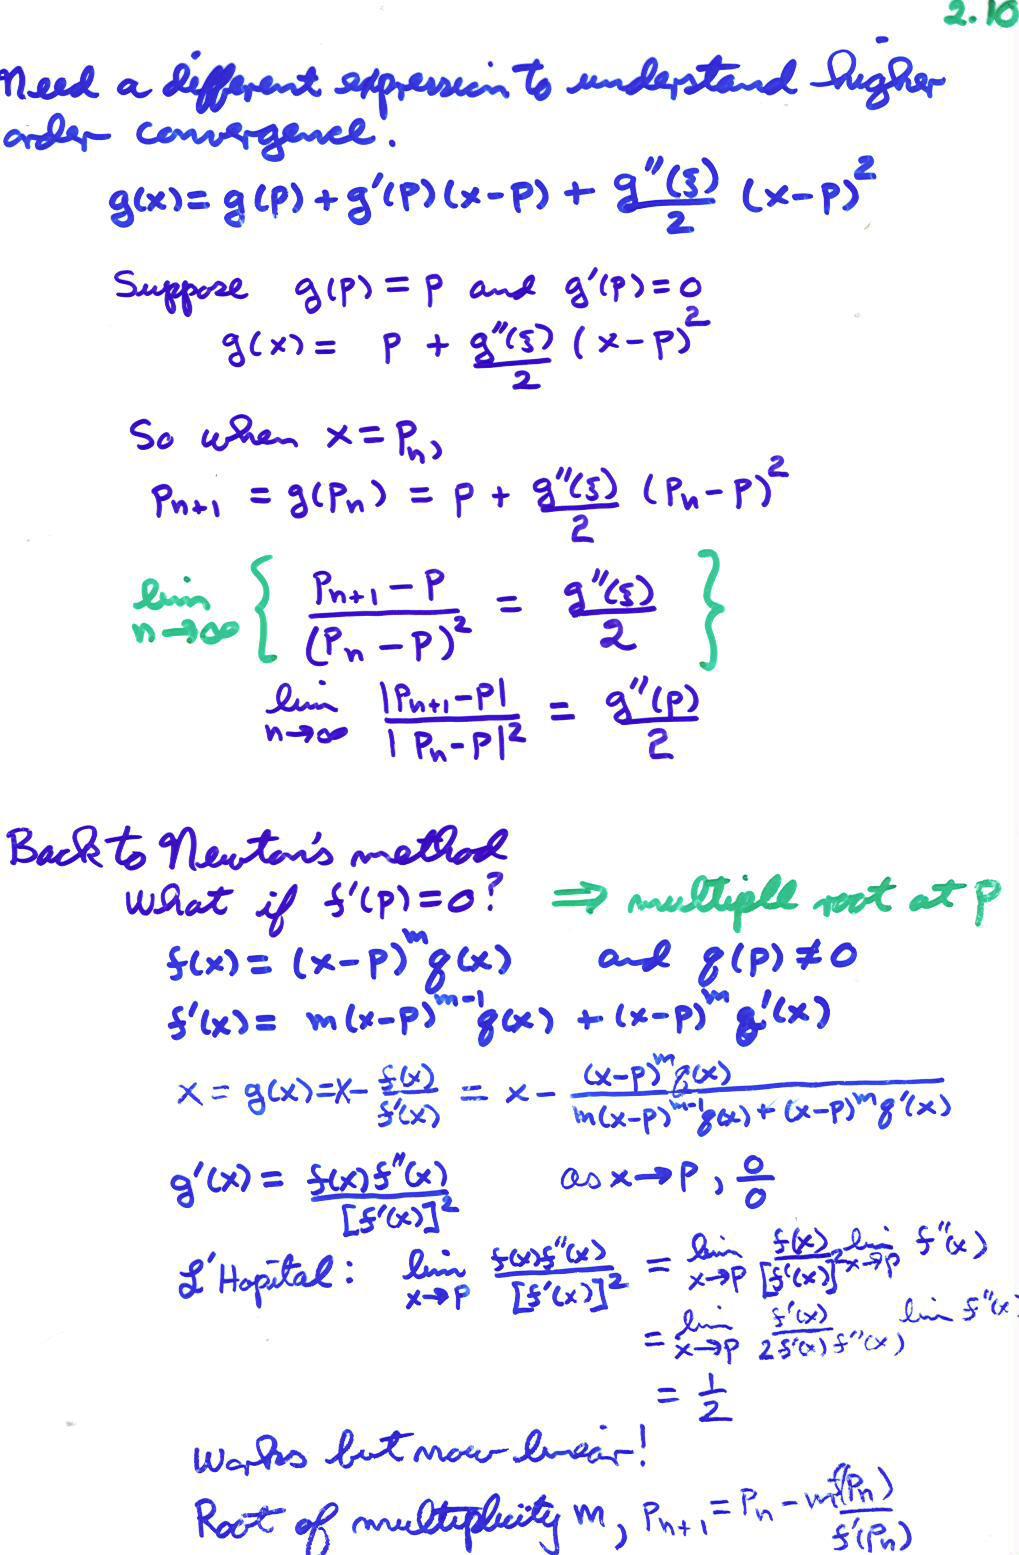 2.10
Need a different expression to understand higher
order convergence.
g(x) = g(p) + g'(p)(x-p) + g''(ξ)/2 (x-p)^2
Suppose g(p) = p and g'(p) = 0
g(x) = p + g''(ξ)/2 (x-p)^2
So when x = p_n,
p_{n+1} = g(p_n) = p + g''(ξ)/2 (p_n - p)^2
lim n→∞ { (p_{n+1} - p)/(p_n - p)^2 = g''(ξ)/2 }
lim n→∞ |p_{n+1} - p|/|p_n - p|^2 = g''(p)/2
Back to Newton's method
What if f'(p) = 0? ⇒ multiple root at p
f(x) = (x-p)^m q(x) and q(p) ≠ 0
f'(x) = m(x-p)^{m-1} q(x) + (x-p)^m q'(x)
x = g(x) = x - f(x)/f'(x) = x - (x-p)^m q(x)/(m(x-p)^{m-1} q(x) + (x-p)^m q'(x))
g'(x) = f(x)f''(x)/[f'(x)]^2 as x→p, 0/0
L'Hopital: lim x→p f(x)f''(x)/[f'(x)]^2 = lim x→p f(x)/[f'(x)]^2 lim x→p f''(x)
= lim x→p f'(x)/(2f'(x)f''(x)) lim f''(x)
= 1/2
Works but now linear!
Root of multiplicity m, p_{n+1} = p_n - m f(p_n)/f'(p_n)